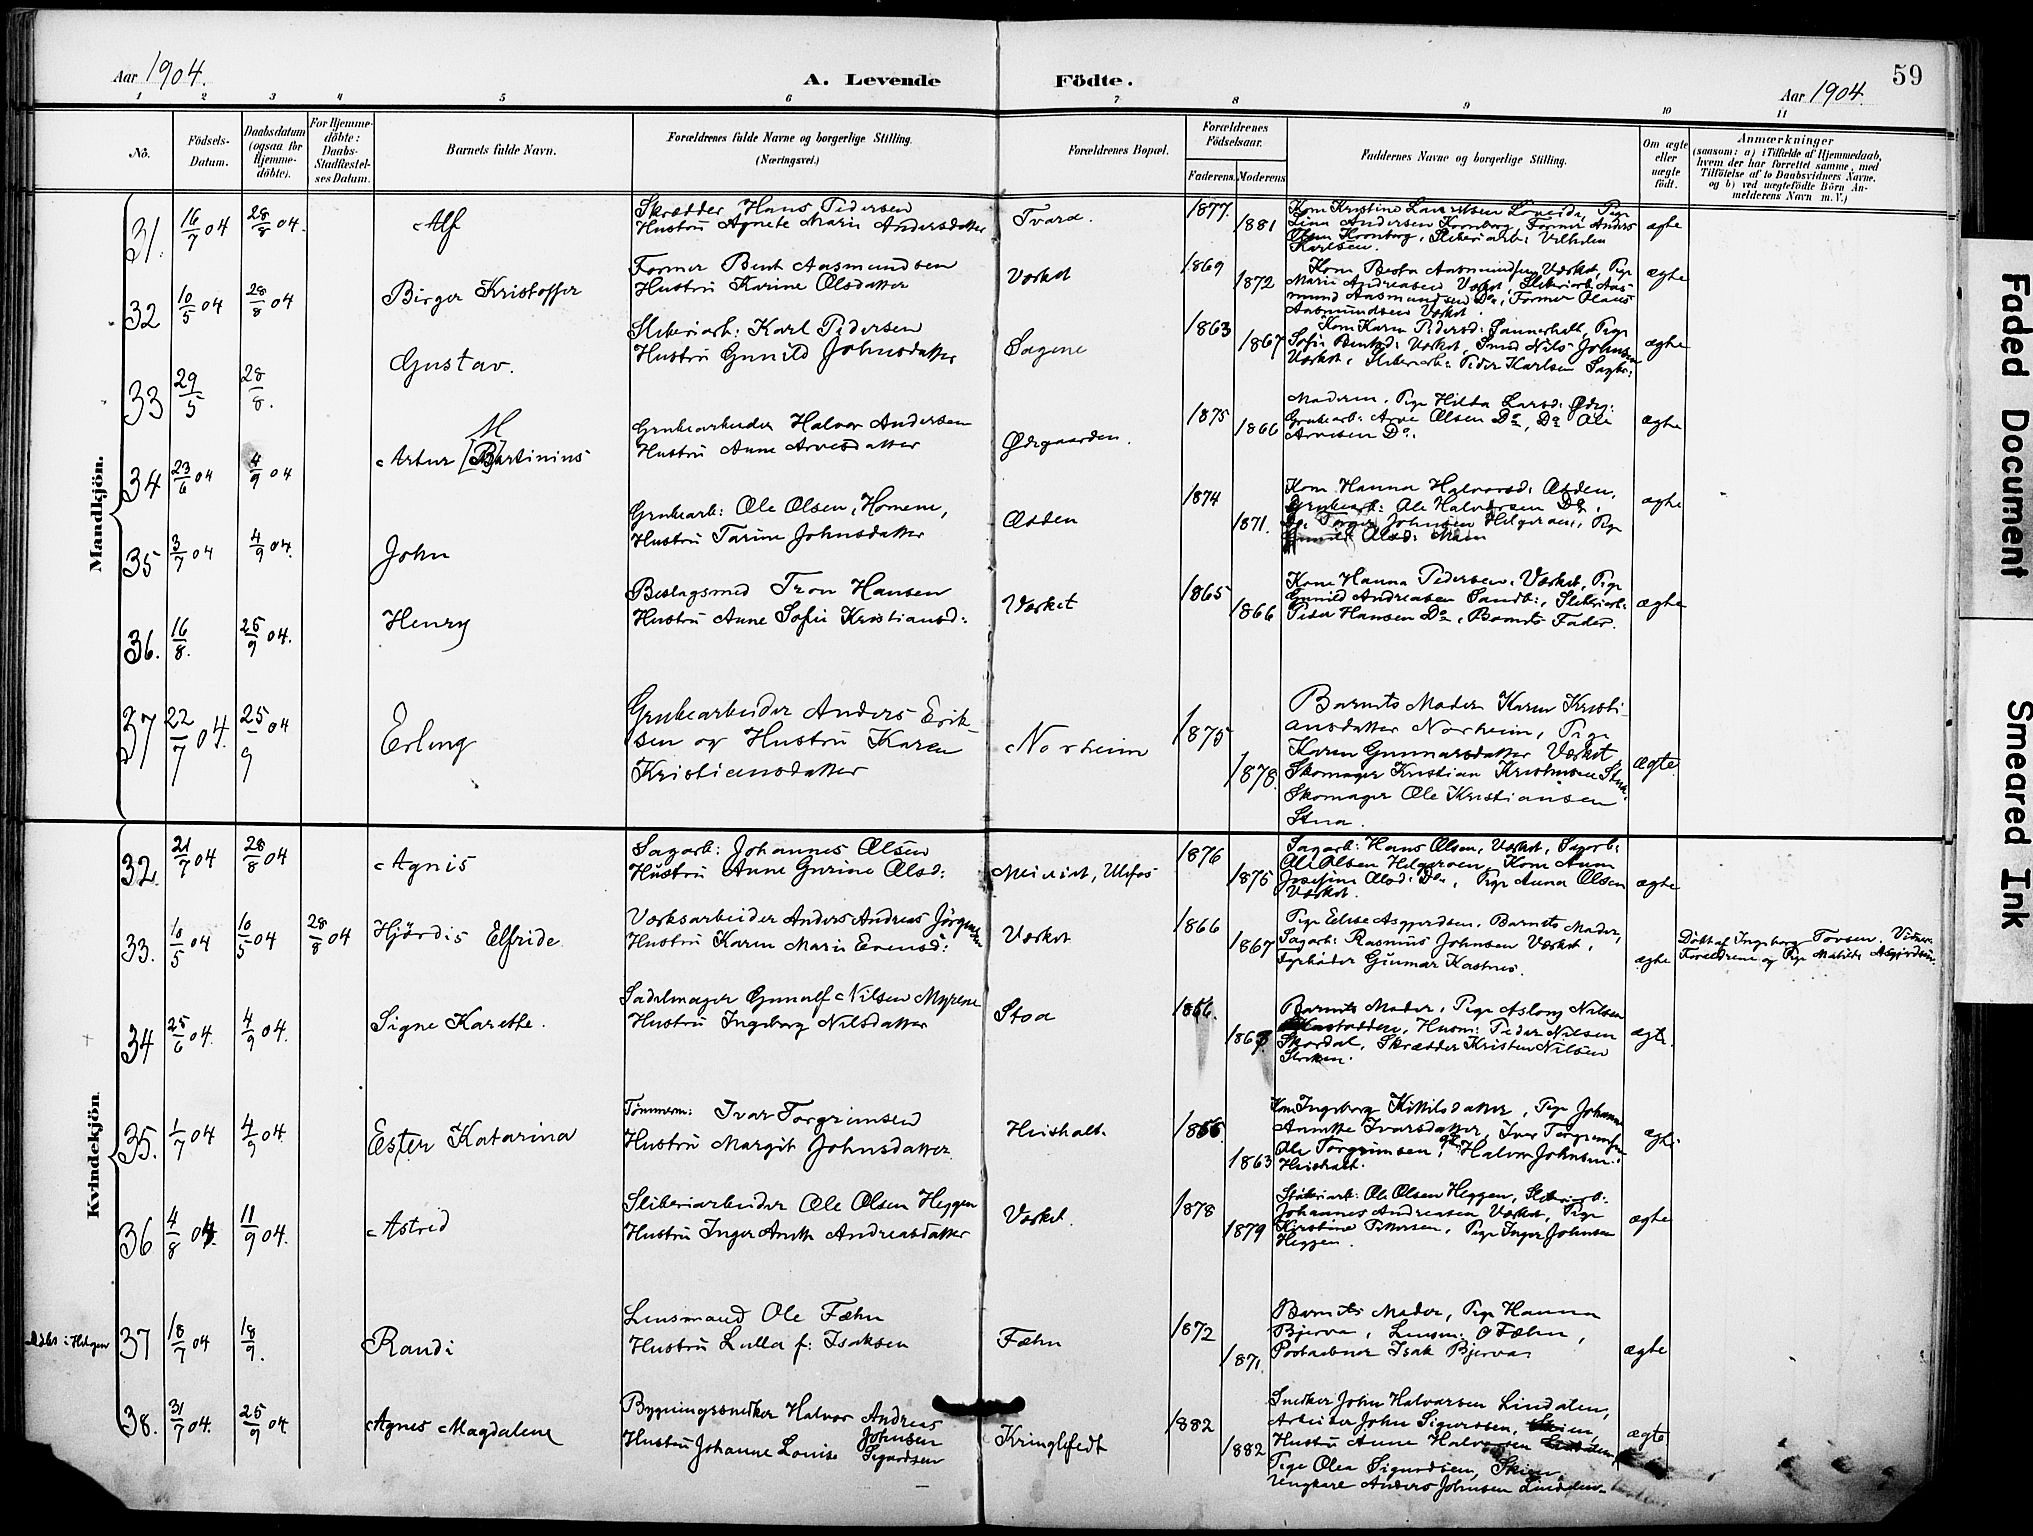 Aar 1904.
A. Levende Födte.
59
Aar 1904
1 2 3 4 5 6 7 8 9 10 11
No.
Födsels-
Datum.
Daabsdatum
(ogsaa for
Hjemme-
döbte).
For Hjemme-
döbte:
Daabs-
Stadfæstel-
ses Datum.
Barnets fulde Navn.
Forældrenes fulde Navne og borgerlige Stilling.
(Næringsvei.)
Forældrenes Bopæl.
Forældrenes
Födselsaar.
Faderens. Moderens
Faddernes Navne og borgerlige Stilling.
Om ægte
eller
uægte
födt.
Anmærkninger
(saasom: a) i Tilfælde af Hjemmedaab,
hvem der har forrettet samme, med
Tilföielse af to Daabsvidners Navne.
og b) ved uægtefödte Börn An-
melderens Navn m. V.)
Mandkjön.
31. 16/7 04 28/8 04.
Alf
Skrædder Hans Pedersen
Hustru Agnete Marie Andersdatter
Tvara.
1877.
1881
Kone Kristine Lauritsen
Karlsen.
ægte
32 10/5 04 28/8 04
Birger Kristoffer
Former Bent Aasmundsen
Hustru Karine Olsdatter
Værket
1869
1872
Marie Andreasen Værket, Sliberiarb: Aas-
mund Aasmundsen Do, Former Olaus
Aasmundsen Værket.
ægte
33 29/5 28/8.
Gustav.
Sliberiarb: Karl Pedersen
Hustru Gunild Johnsdatter
Sagene
1863
1867
Værket, Sliberiarb: Peder Karlsen
ægte
34 23/6 04 4/9 04
M
Artur [B]artinius
Grubearbeider Halvor Andersen
Hustru Anne Arvesdatter
Ødegaarden.
1875
1866
Moderen, Pige Hilda Larsd: Ødeg:
Grubearb: Arve Olsen Do, Do Ole
Arvesen Do.
ægte
35 3/7 04 4/9 04.
John
Grubearb: Ole Olsen, Homene,
Hustru Tarine Johnsdatter
Aasden
1874
1871.
Kone Hanna Halvorsd:
Grubearb: Ole Halvorsen Do,
Johnsen Helgeroen, Pige
Olsd: Moen
ægte
36. 16/8. 25/9 04.
Henry
Beslagsmed Tron Hansen
Hustru Anne Sofie Kristiansd:
Værket
1865
1866
Kone Hanna Pedersen, Værket, Pige
Gunild Andreasen Sandb:, Sliberiarb:
Peder Hansen Do, Barnets Fader.
ægte
37 22/7 04. 25/9 04
Erling
Grubearbeider Anders Erik-
sen og Hustru Karen
Kristiansdatter
Norheim
1875
1878.
Barnets Moder Karen Kristi-
ansdatter Norheim, Pige
Karen Gunnarsdatter Værket,
Skomager Kristian Kristiansen
Skomager Ole Kristiansen
Stua.
ægte.
Kvindekjön.
32. 21/7 04 28/8 04
Agnis
Sagarb: Johannes Olsen
Hustru Anne Gurine Olsd:
Ulefos
1876
1875
Sagarb: Hans Olsen, Værket, Sagarb:
Ole Olsen Helgeroen, Kone Anne
Josefine Olsd: Do, Pige Anna Olsen
Værket.
ægte
33. 10/5 04 10/5 04 28/8 04
Hjørdis Elfride
Værksarbeider Anders Andreas Jörgensen
Hustru Karen Marie Evensd:
Værket
1866
1867
Pige Elise Asgjerdsen, Barnets Moder,
Sagarb: Rasmus Johnsen Værket,
Fyrböder Gunnar Kastnes.
ægte
Döbt af Ingeborg Tovsen. Vidner:
Forældrene og Pige Matilde Asgjerdsen.
34 25/6 04. 4/9 04.
Signe Karethe.
Sadelmager Gunulf Nilsen Myrene
Hustru Ingeborg Nilsdatter
Stoa
1866.
Barnets Moder, Pige Aslaug Nilsen
Husm: Peder Nilsen
Skordal, Skrædder Kristen Nilsen
ægte.
35. 1/7 04 4/9 04.
Ester Katarina
Tömmerm: Ivar Torgrimsen
Hustru Margit Johnsdatter
Heisholt.
1866.
1863
Kone Ingeborg Kittilsdatter, Pige Johanne
Annette Ivarsdatter, Iver Torgrimsen,
Ole Torgrimsen, og Halvor Johnsen.
Heisholt.
ægte
36 4/8 04. 11/9 04.
Astrid
Sliberiarbeider Ole Olsen Heggen
Hustru Inger Anette Andreasdatter
Værket.
1878
1879
Sliberiarb: Ole Olsen Heggen, Sliberiarb:
Johannes Andreasen Værket, Pige
Kirstine Pettersen, Pige Inger Johnsen
Heggen.
ægte
Döbt i Helgen
37 18/7 04 18/9.
Randi
Lensmand Ole Fæhn
Hustru Lulla f: Isaksen
Fæhn
1872
1871.
Barnets Moder, Pige Hanna
Bjerva, Lensm: O Fæhn,
Postaabner Isak Bjerva
ægte
38. 31/7 04. 25/9 04.
Agnes Magdalene
Bygningssnedker Halvor Andreas
Johnsen
Hustru Johanne Louise Sigurdsen
Kringlefedt
1882
1882
Snedker John Halvorsen Lindalen,
Arbeider John Sigurdsen, Skien,
Hustru Anne Halvorsen
Pige Olea Sigurdsen, Skien,
Ungkare Anders Johnsen Lindalen.
ægte
Faded Document
Smeared Ink